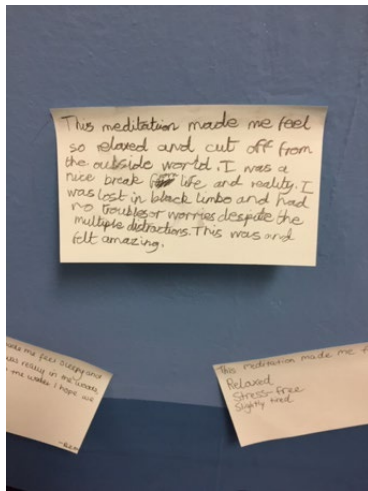 This meditation made me feel
so relaxed and cut off from
the outside world. I was a
nice break life and reality. I
was lost in black limbo and had
no troubles or worries despite the
multiple distractions. This was and
felt amazing.
made me feel sleepy and
was really in the woods
me water I hope we
This meditation made me f
Relaxed
Stress-free
Slightly tired